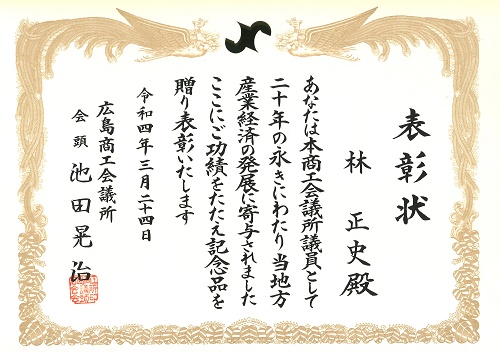 表彰状
林 正史殿
あなたは本商工会議所議員として
二十年の永きにわたり当地方
産業経済の発展に寄与されました
ここにご功績をたたえ記念品を
贈り表彰いたします
令和四年三月二十四日
広島商工会議所
会頭 池田晃治